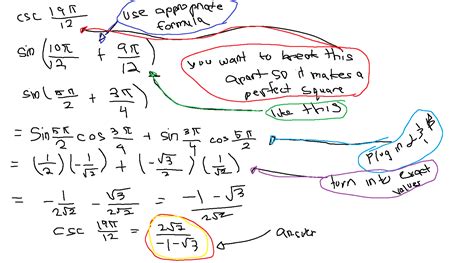 csc 19π/12
use appropriate formula
sin (10π/2 + 9π/12)
you want to break this apart so it makes a perfect square
sin (5π/2 + 3π/4)
like this
= sin 5π/2 cos 3π/4 + sin 3π/4 cos 5π/2
plug in
= (1/2)(-1/√2) + (-√3/2)(1/√2)
turn into exact values
= -1/2√2 - √3/2√2 = -1-√3/2√2
csc 19π/12 = 2√2/-1-√3
answer